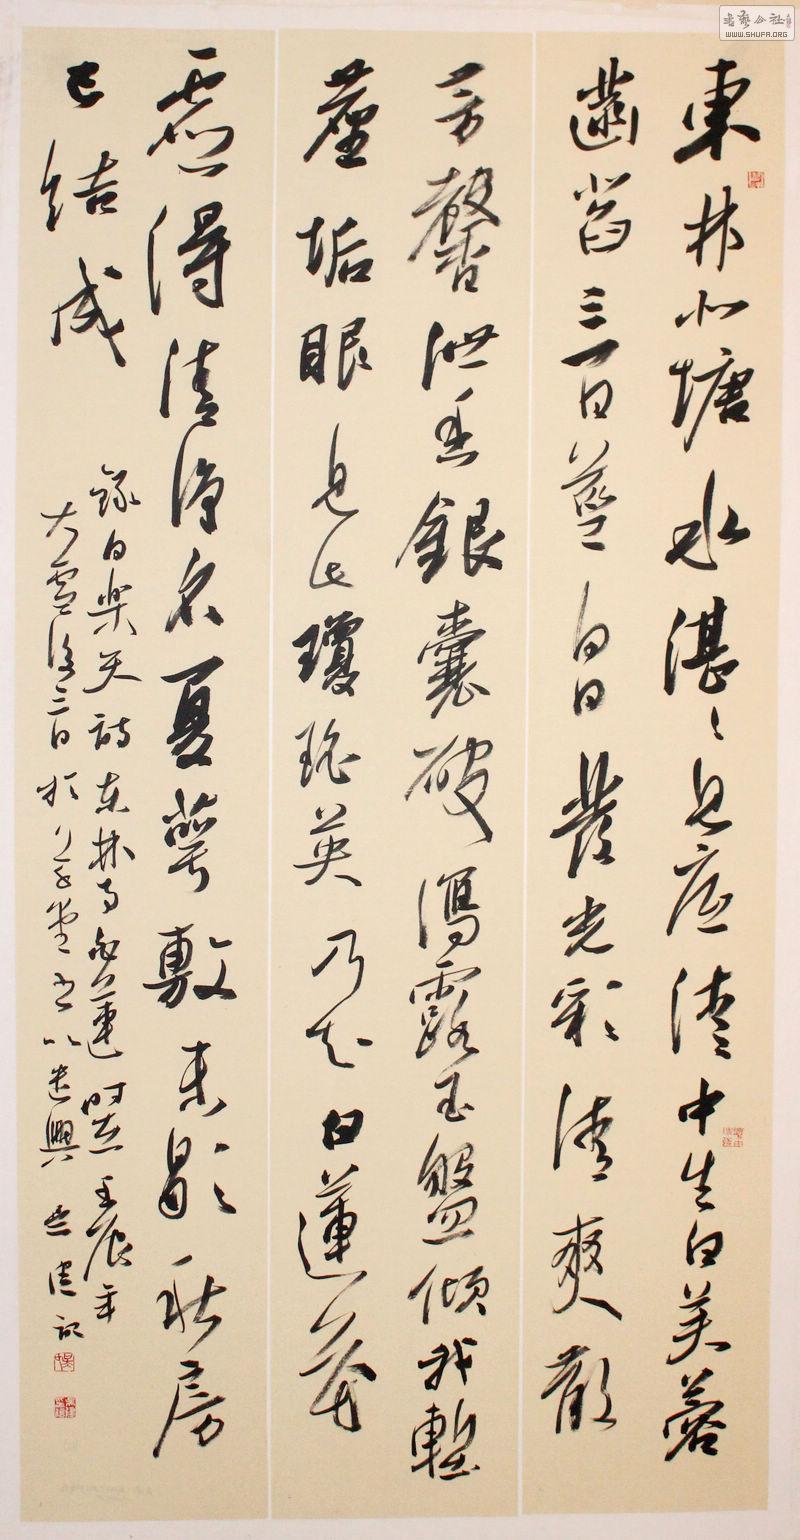 書藝公社
WWW.SHUFA.ORG
東林北塘水湛〻見底清中生白芙蓉
菡萏三百莖白日發光彩清爽散
芳馨泄香銀囊破瀉露玉盤傾我慙
塵垢眼見此瓊瑤英乃知白蓮花
虛得清淨名夏萼敷未歇秋房
已結成
錄白樂天詩東林寺白蓮時在壬辰年
大雪後三日於堂書以遣興 記